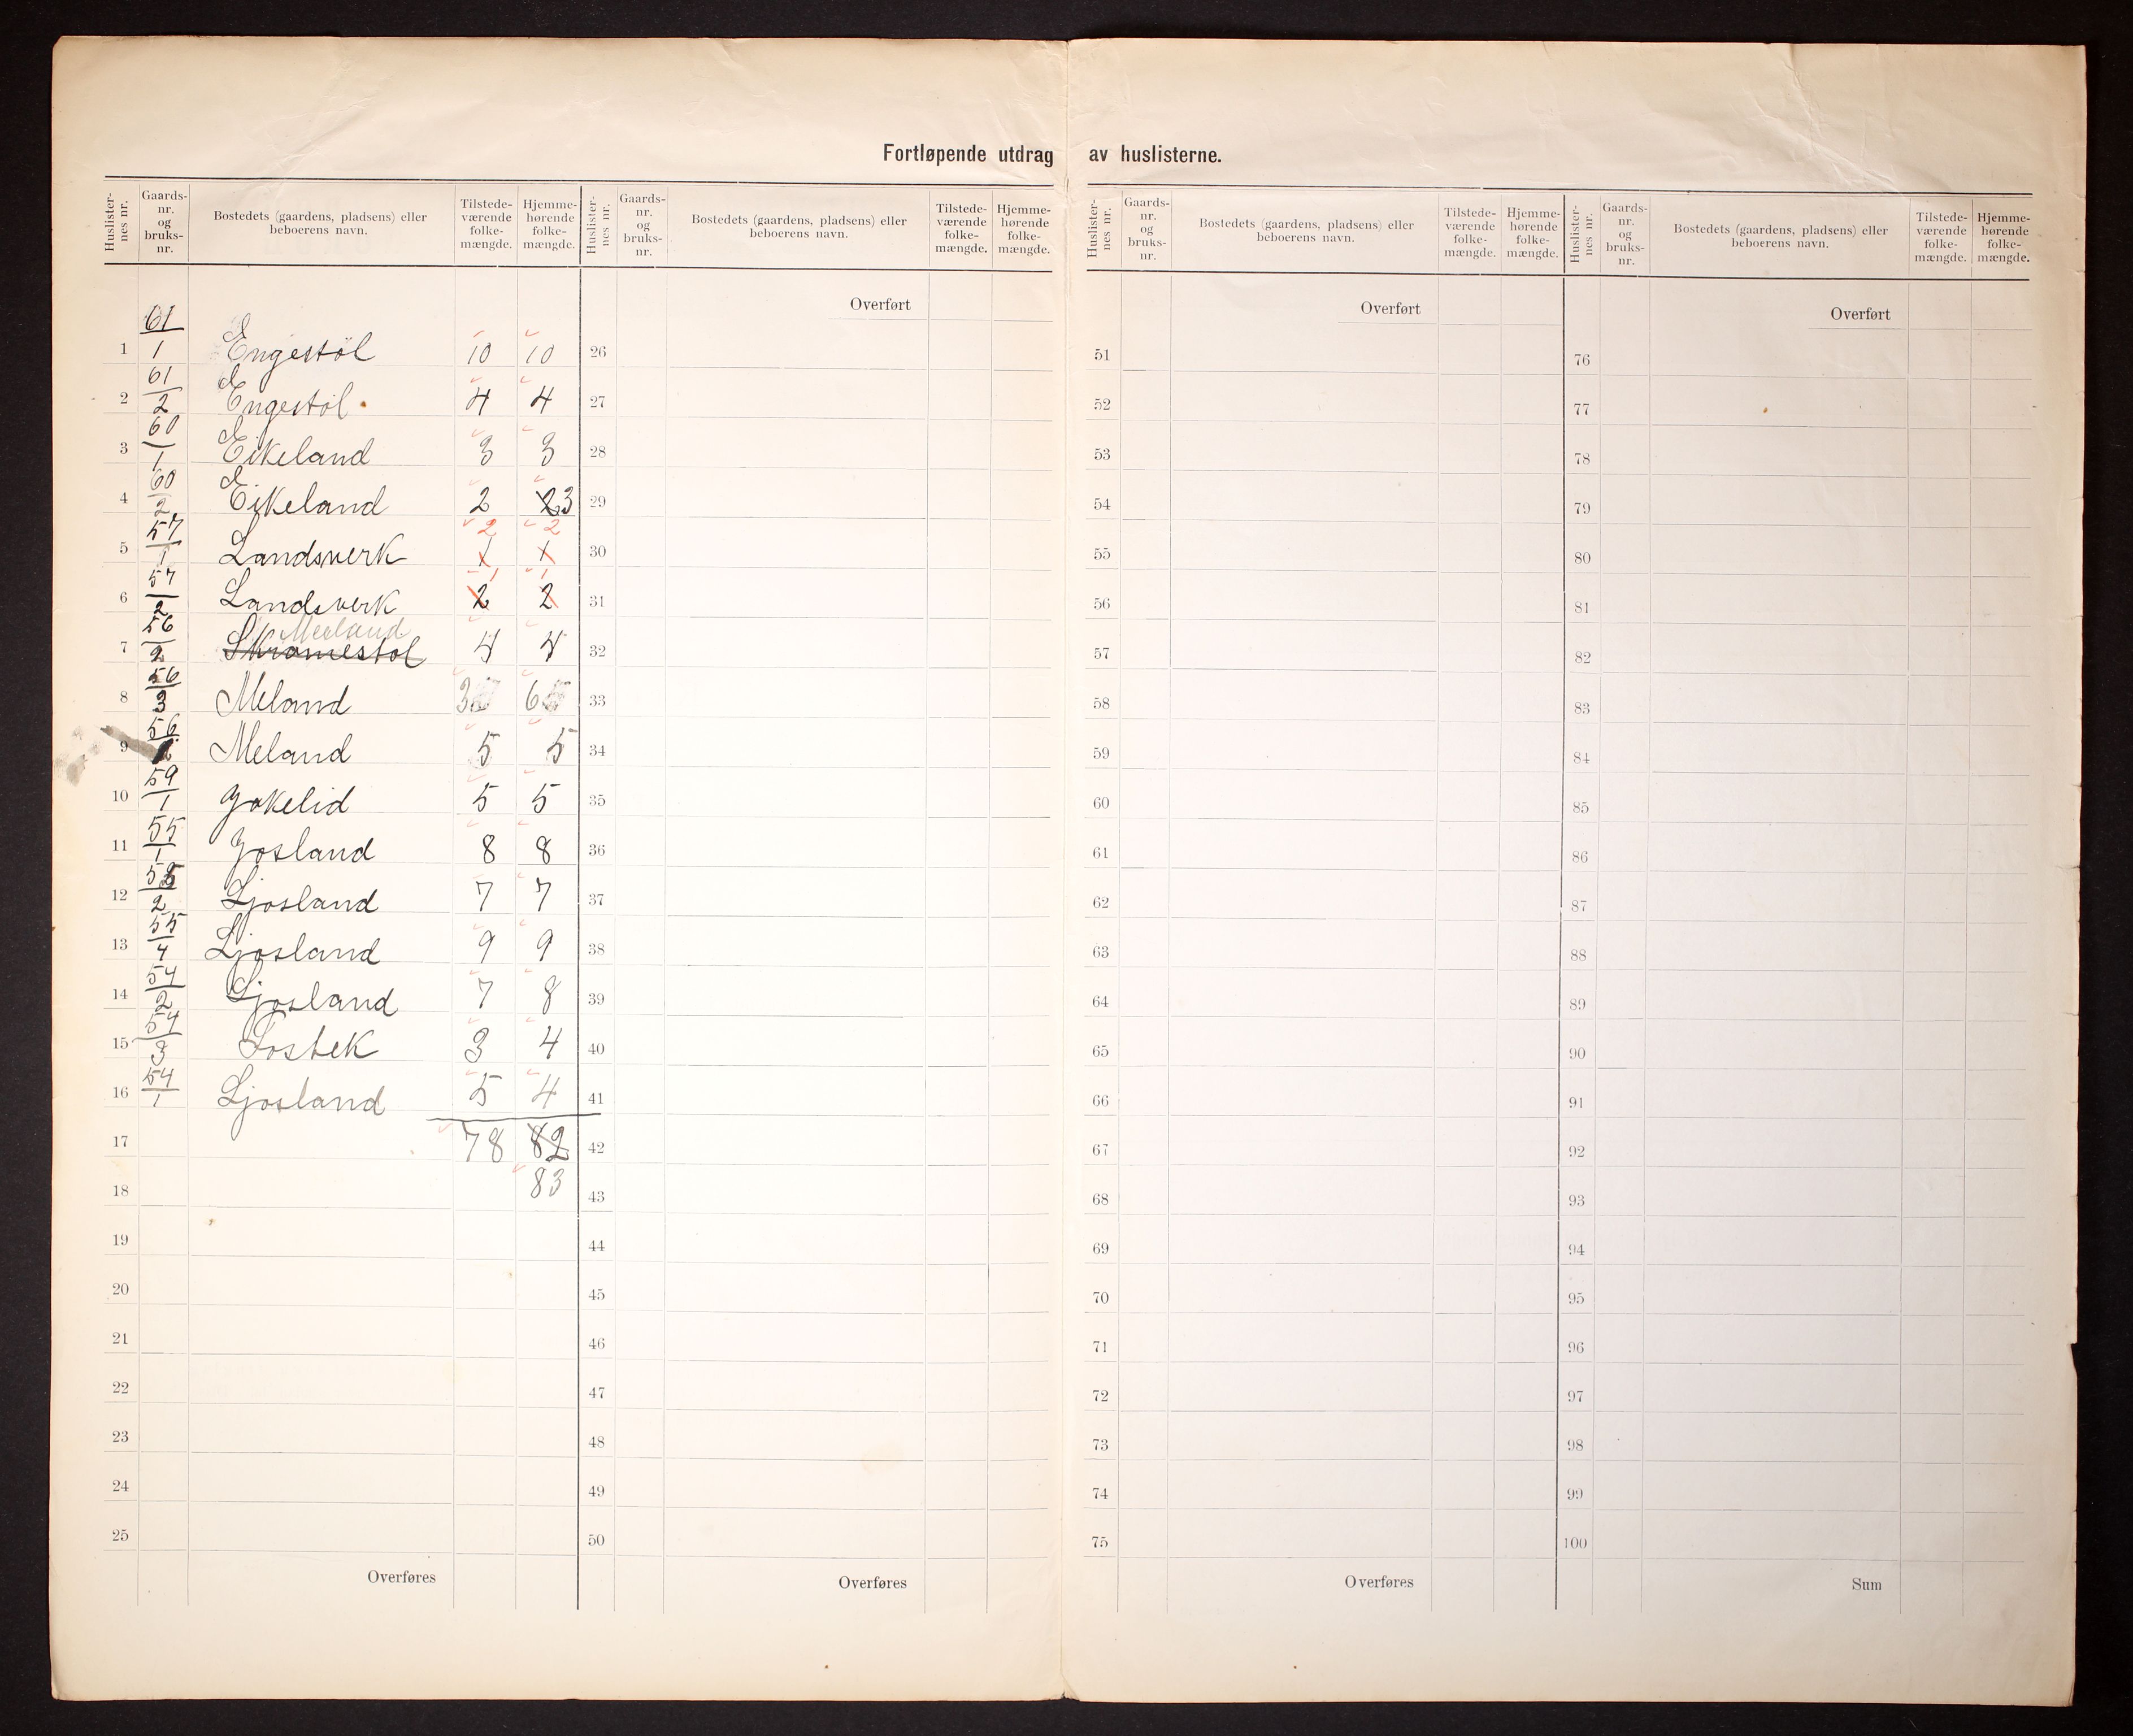 Fortløpende utdrag av huslisterne.
Huslister-nes nr. Gaards-nr. og bruks-nr. Bostedets (gaardens, pladsens) eller beboerens navn. Tilstede-værende folke-mængde. Hjemme-hørende folke-mængde. Huslister-nes nr. Gaards-nr. og bruks-nr. Bostedets (gaardens, pladsens) eller beboerens navn. Tilstede-værende folke-mængde. Hjemme-hørende folke-mængde.
Huslister-nes nr. Gaards-nr. og bruks-nr. Bostedets (gaardens, pladsens) eller beboerens navn. Tilstede-værende folke-mængde. Hjemme-hørende folke-mængde. Huslister-nes nr. Gaards-nr. og bruks-nr. Bostedets (gaardens, pladsens) eller beboerens navn. Tilstede-værende folke-mængde. Hjemme-hørende folke-mængde.
Overført Overført Overført
1 61/1 Engestöl 10 10 26 51 76
2 61/2 Engestöl 4 4 27 52 77
3 60/1 Eikeland 3 3 28 53 78
4 60/2 Eikeland 2 2 3 29 54 79
2 2
5 57/1 Landsverk 1 1 30 55 80
1 1
6 57/2 Landsverk 2 2 31 56 81
Meeland
7 56/2 Skromestol 4 4 32 57 82
8 56/3 Meland 3 6 33 58 83
9 56 Meland 5 5 34 59 84
10 59/1 Gokelid 5 5 35 60 85
11 55/1 Josland 8 8 36 61 86
12 55/2 Ljosland 7 7 37 62 87
13 55/4 Ljosland 9 9 38 63 88
14 54/2 Ljosland 7 8 39 64 89
15 54/3 Fosbek 3 4 40 65 90
16 54/1 Ljosland 5 4 41 66 91
17 78 82 42 67 92
18 83 43 68 93
19 44 69 94
20 45 70 95
21 46 71 96
22 47 72 97
23 48 73 98
24 49 74 99
25 50 75 100
Overføres Overføres Overføres Sum